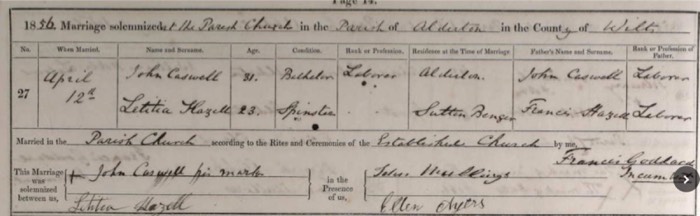 Page 14.
1856. Marriage solemnized at the Parish Church in the Parish of Alderton in the County of Wilts
No. When Married. Name and Surname. Age. Condition. Rank or Profession. Residence at the Time of Marriage Father's Name and Surname. Rank or Profession of Father.
27 April 12th John Caswell 31. Bachelor Laborer Alderton. John Caswell Laborer
Letitia Hazell 23. Spinster Sutton Benger Francis Hazell Laborer
Married in the Parish Church according to the Rites and Ceremonies of the Established Church by me,
Francis Goddard
Incumbent
This Marriage was solemnized between us, John Caswell his mark in the Presence of us,
Letitia Hazell Ellen Ayers